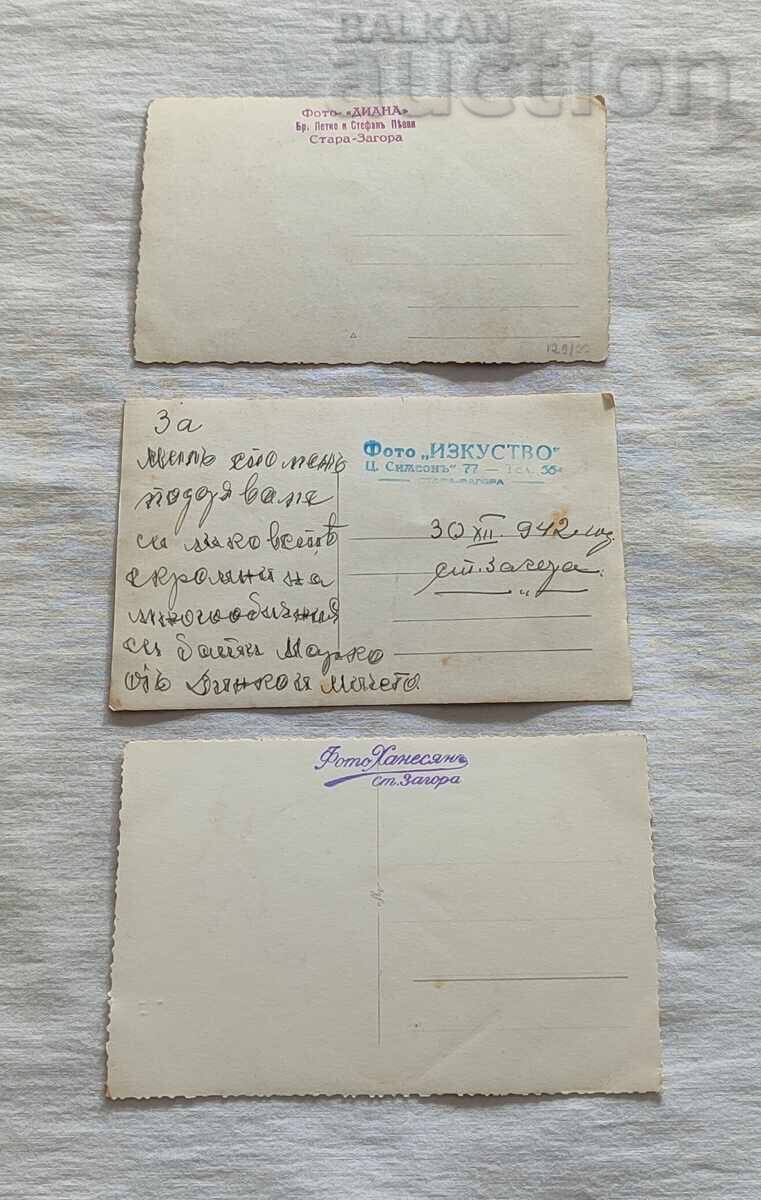 BALKAN
auction
Фото- «ДИАНА»
Бр. Петко и Стефанъ Пѣеви
Стара-Загора
125/00
За
милъ споменъ
подарявам
си
скромни на
многообичния
си бати Марко
отъ Динко и Мичето.
Фото „ИЗКУСТВО"
Ц. Симеонъ" 77 — Тел. 56
СТАРА-ЗАГОРА
30 XII. 942 год
ст. Загора.
„
Фото Ханесянъ
ст. Загора